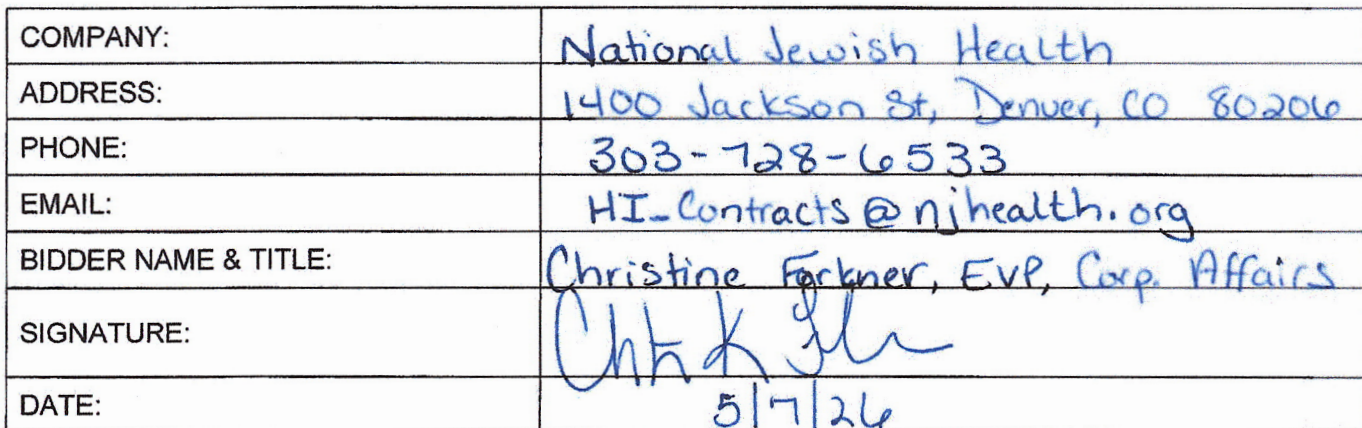 COMPANY: National Jewish Health
ADDRESS: 1400 Jackson St, Denver, CO 80206
PHONE: 303-728-6533
EMAIL: HI_Contracts@njhealth.org
BIDDER NAME & TITLE: Christine Forkner, EVP, Corp. Affairs
SIGNATURE:
DATE: 5/7/26